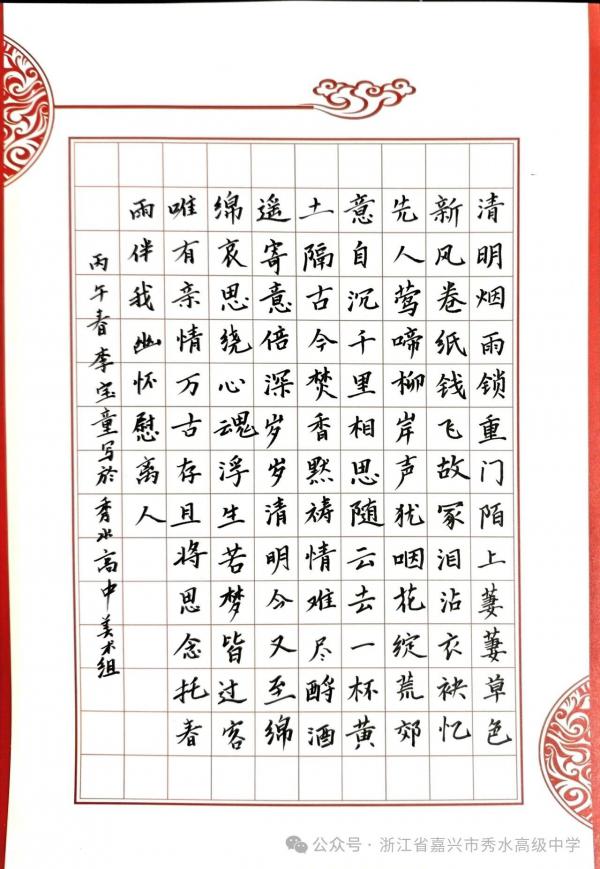 清明烟雨锁重门陌上萋萋草色
新风卷纸钱飞故冢泪沾衣袂忆
先人莺啼柳岸声犹咽花绽荒郊
意自沉千里相思随云去一杯黄
土隔古今焚香默祷情难尽酹酒
遥寄意倍深岁岁清明今又至绵
绵哀思绕心魂浮生若梦皆过客
唯有亲情万古存且将思念托春
雨伴我幽怀慰离人
丙午春李宝童写於秀水高中美术组
公众号·浙江省嘉兴市秀水高级中学